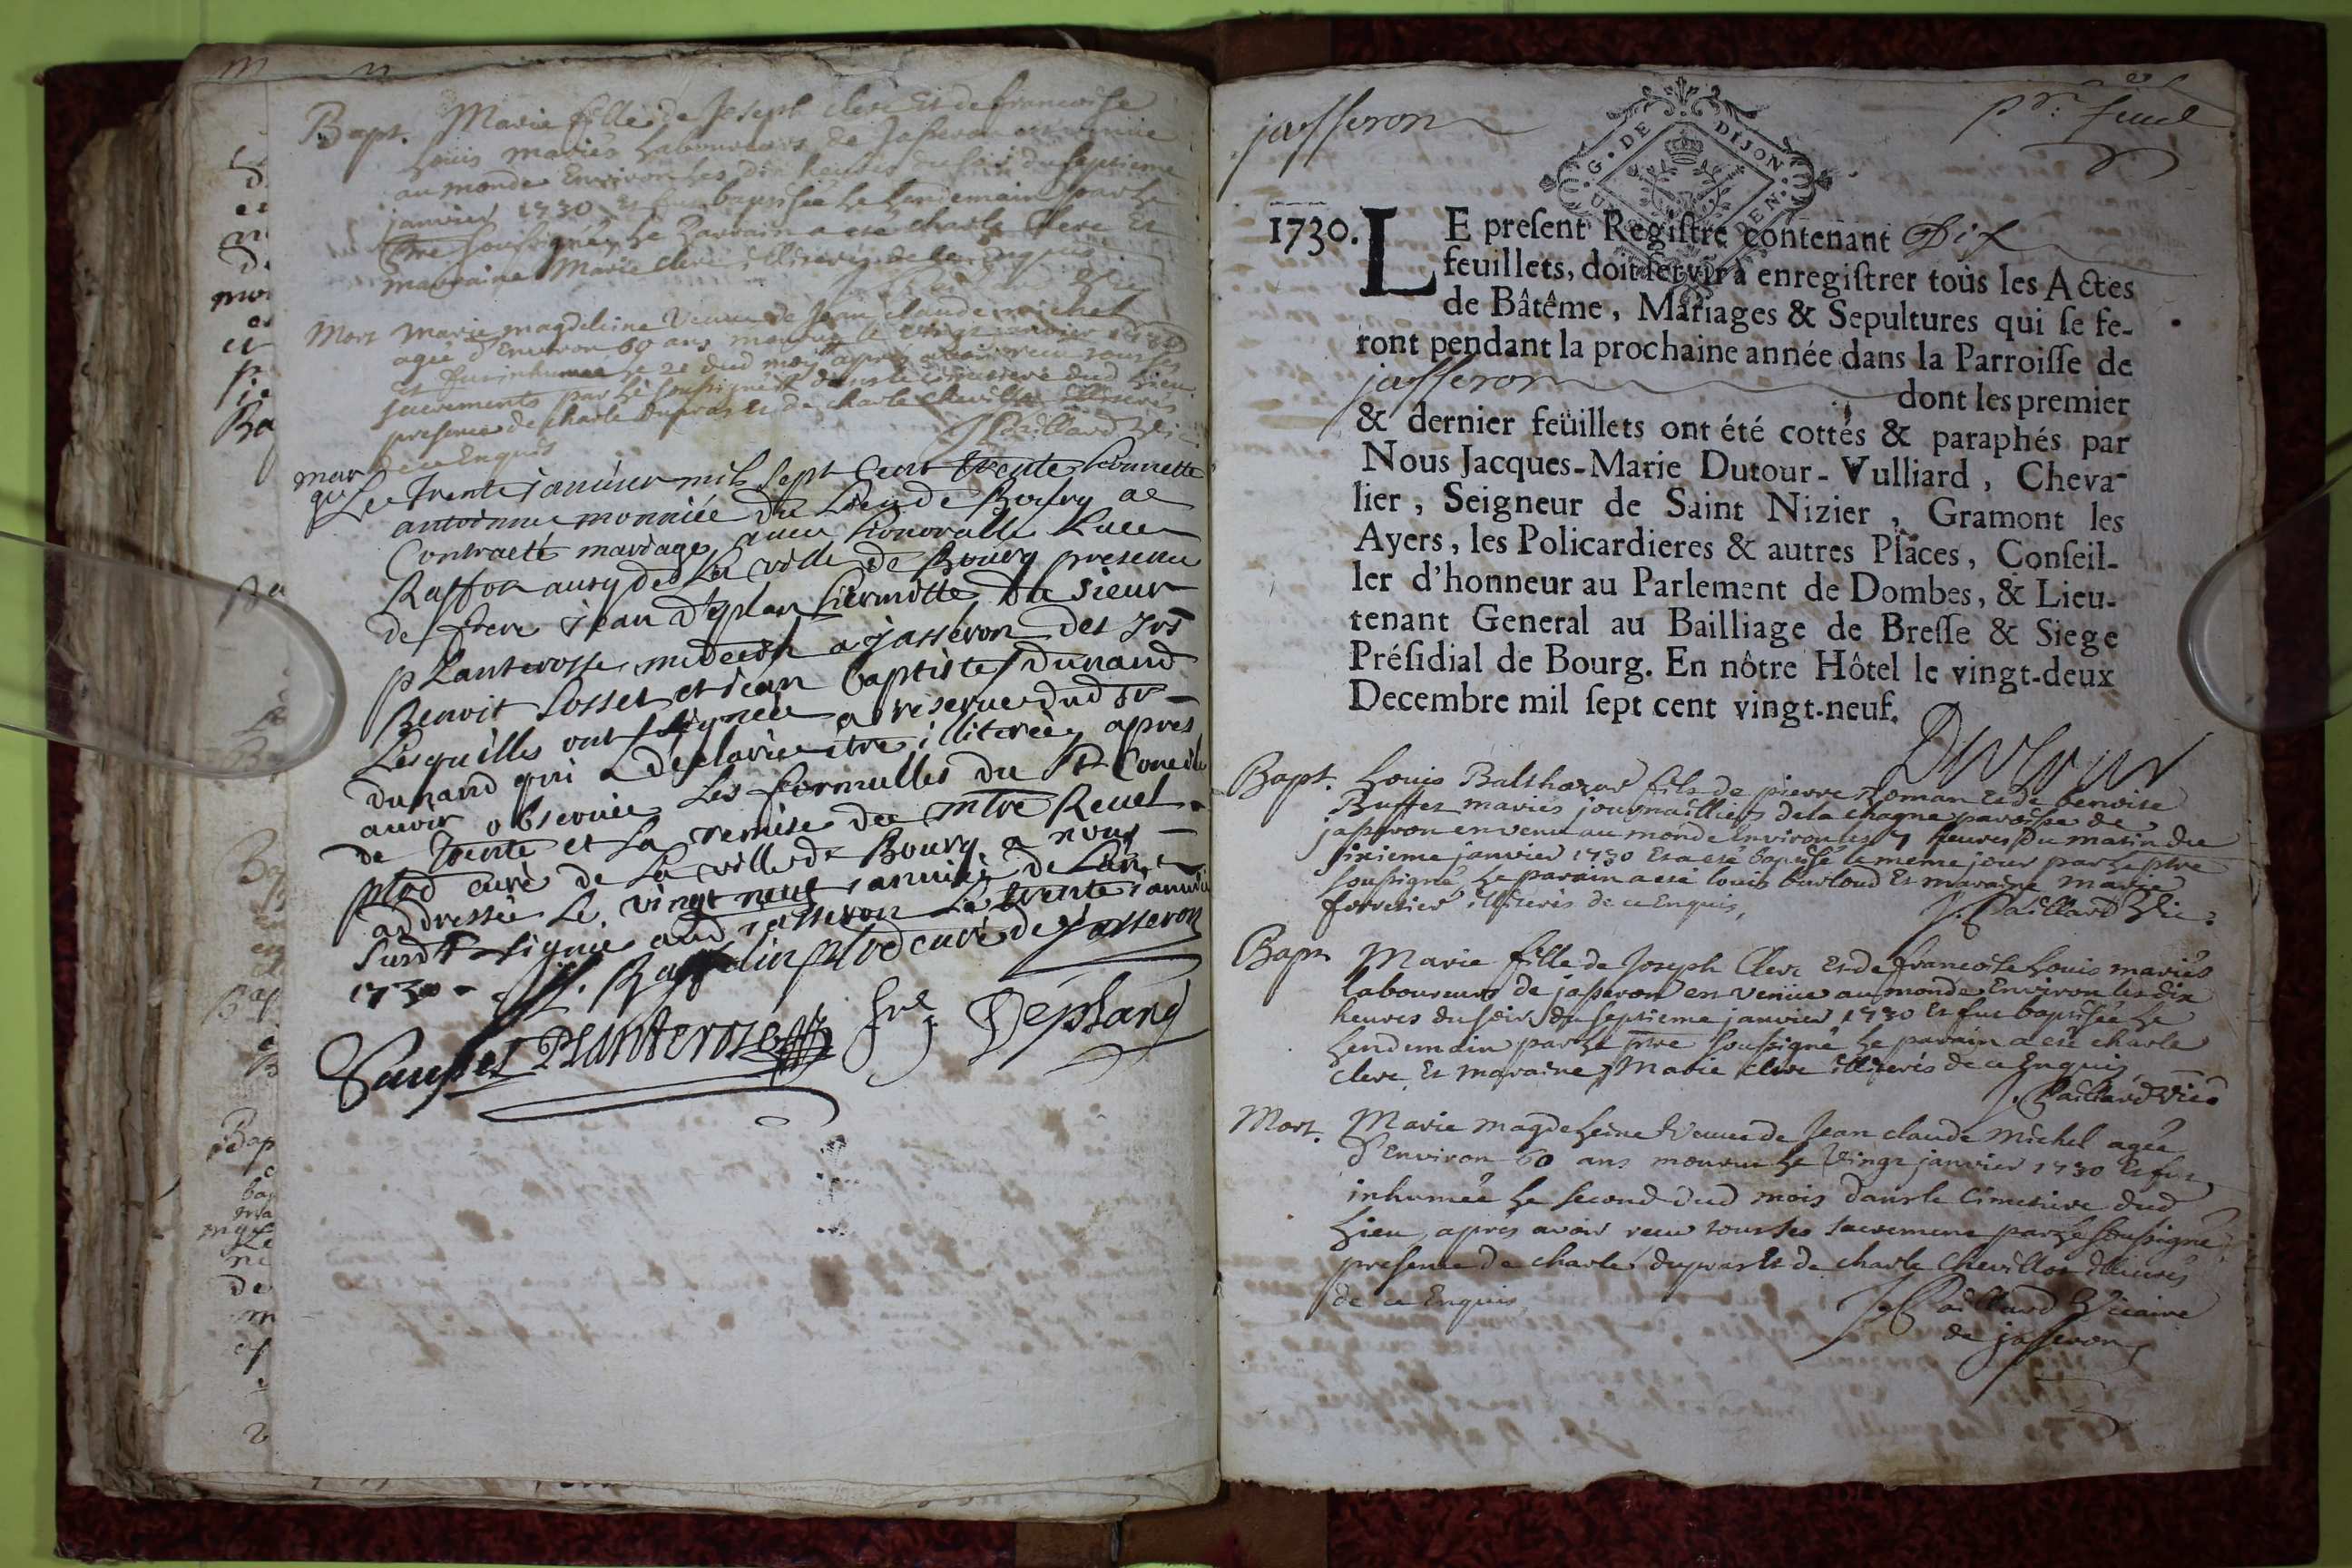 Bapt. Marie fille de Joseph clerc Et de francoise
Louis mariés Laboureurs de Jasseron est venüe
au monde Environ les dix heures du soir du septieme
janvier 1730 et fut baptisée le Lendemain par le
ptre soussigné, Le Parrain a esté charle clerc Et
marraine Marie clerc, illiterés de ce Enquis
Mort Marie magdeleine Veuve de Jean claude michel
agée d'Environ 60 ans mourut le vingt janvier 1730
et fut inhumée le 21 dud mois apres avoir receu tous ses
sacrements par le soussigné dans le cimetiere dud Lieu
presence de charle dupras et de charle chevillon illiterés
de ce Enquis J. Paillard Vic:
mariage Le trente januier mil sept Cent trente honnette
antoinne monniée du Lieu de Bourg at
Contracté mariage auec honorable
Raffon aussy de La ville de Bourg presence
de frere jean d'eplan hermitte Du sieur
planterosse medecin a jasseron des srs
Benoit sosset et jean baptiste dunand
Lesquells ont signée a reserve dud sr
dunand qui a déclarée être illiterée, apres
auoir obseruée Les formulles du St Concille
de trente et La remise de mtre Reuel
ptre curé de La ville de Bourg a nous
addressée Le vingt neuf januiée de L'an
Susdt signée aud jasseron Le trente januié
1730 ptre curé de Jasseron
Planterose fre j Deplang
jasseron
pr. feuil
G. DE DIJON
1730. LE present Registre contenant Dix
feuillets, doit servir à enregistrer tous les Actes
de Bâtême, Mariages & Sepultures qui se fe-
ront pendant la prochaine année dans la Parroisse de
jasseron dont les premier
& dernier feüillets ont été cottés & paraphés par
Nous Jacques-Marie Dutour-Vulliard, Cheva-
lier, Seigneur de Saint Nizier, Gramont les
Ayers, les Policardieres & autres Places, Conseil-
ler d'honneur au Parlement de Dombes, & Lieu-
tenant General au Bailliage de Bresse & Siege
Présidial de Bourg. En nôtre Hôtel le vingt-deux
Decembre mil sept cent vingt-neuf.
Dutour
Bapt. Louis Balthazar fils de pierre Roman Et de benoite
Buffet mariés journailliers de la chagne paroisse de
jasseron est venu au monde Environ les 7 heures du matin du
sixieme janvier 1730 Et a esté baptisé le meme jour par le ptre
soussigné, Le parain a esté louis burloud Et maraine marie
forestier illiterés de ce Enquis, J. Paillard Vic:
Bapt Marie fille de Joseph Clerc Et de francoise Louis mariés
laboureurs de jasseron est venüe au monde Environ les dix
heures du soir du septieme janvier 1730 Et fut baptisée le
Lendemain par le ptre soussigné le parain a esté charle
clerc Et maraine Marie clerc illiterés de ce Enquis
J. Paillard Vic:
Mort. Marie magdeleine Veuve de Jean claude Michel agée
d'Environ 60 ans mourut le Vingt janvier 1730 Et fut
inhumée le second dud mois dans le cimetiere dud
Lieu, apres avoir receu tous ses sacrement par le soussigné
presence de charle dupras Et de charle Chevillon illiterés
de ce Enquis J. Paillard Vicaire
de jasseron